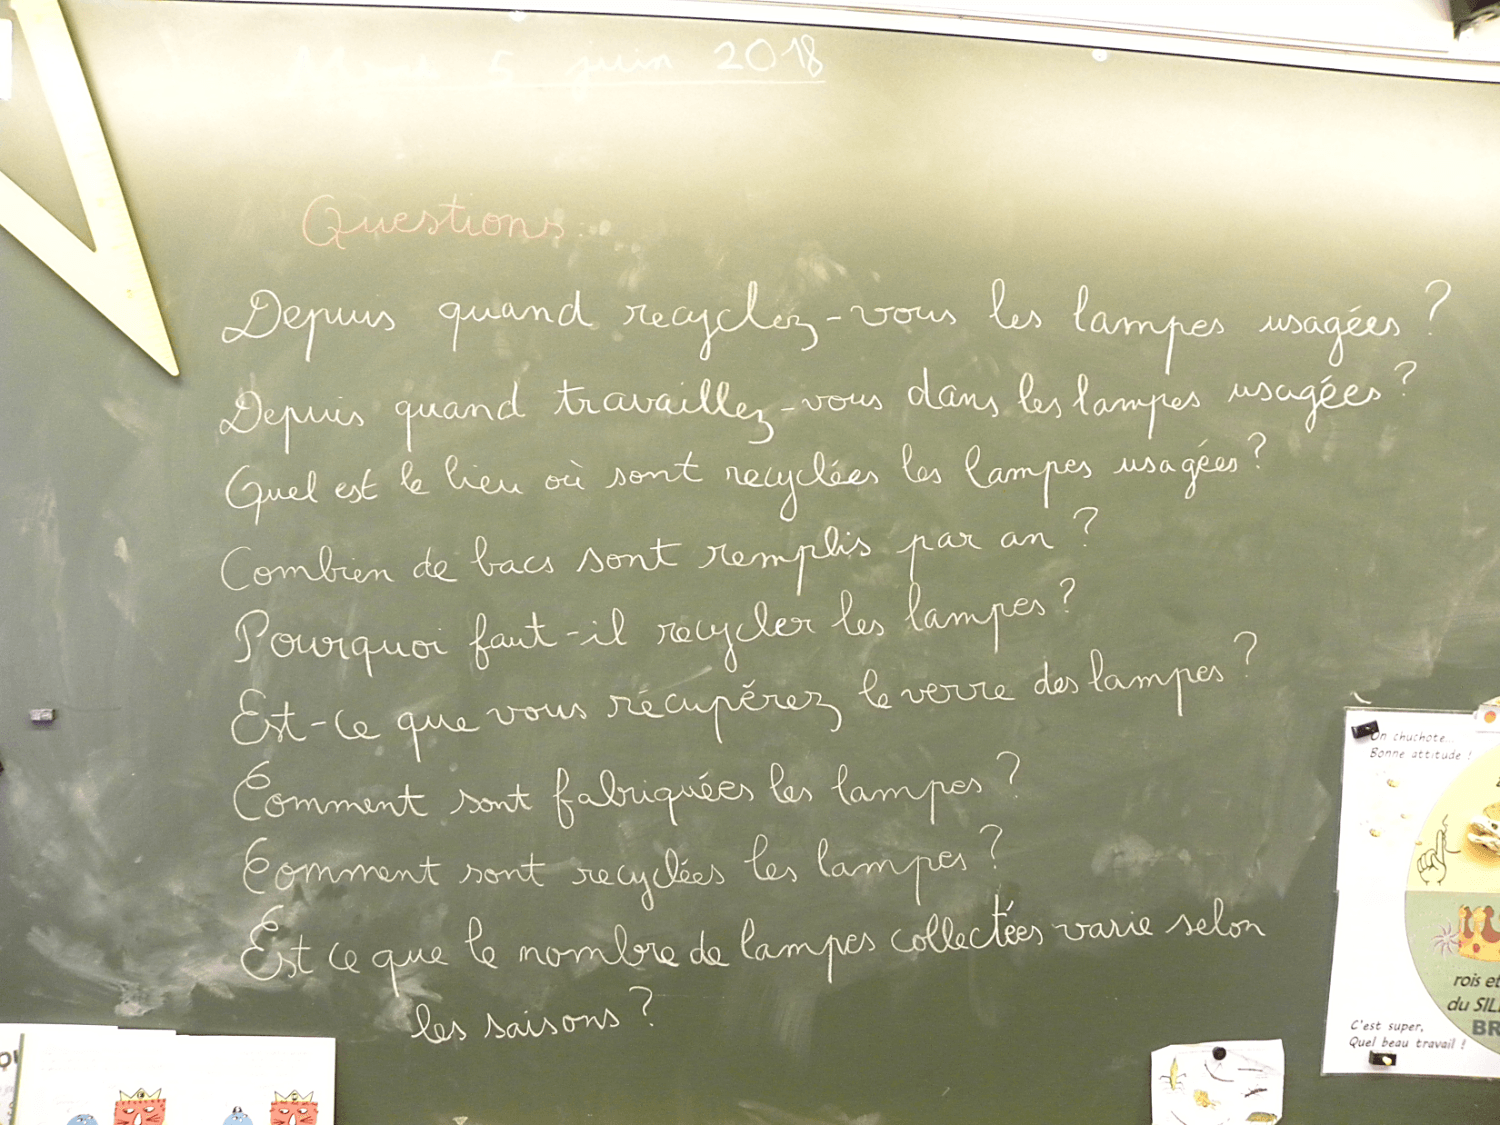 Mardi 5 juin 2018
Questions :
Depuis quand recyclez-vous les lampes usagées ?
Depuis quand travaillez-vous dans les lampes usagées ?
Quel est le lieu où sont recyclées les lampes usagées ?
Combien de bacs sont remplis par an ?
Pourquoi faut-il recycler les lampes ?
Est-ce que vous récupérez le verre des lampes ?
Comment sont fabriquées les lampes ?
Comment sont recyclées les lampes ?
Est ce que le nombre de lampes collectées varie selon
les saisons ?
On chuchote...
Bonne attitude !
rois et
du SIL
BR
C'est super,
Quel beau travail !